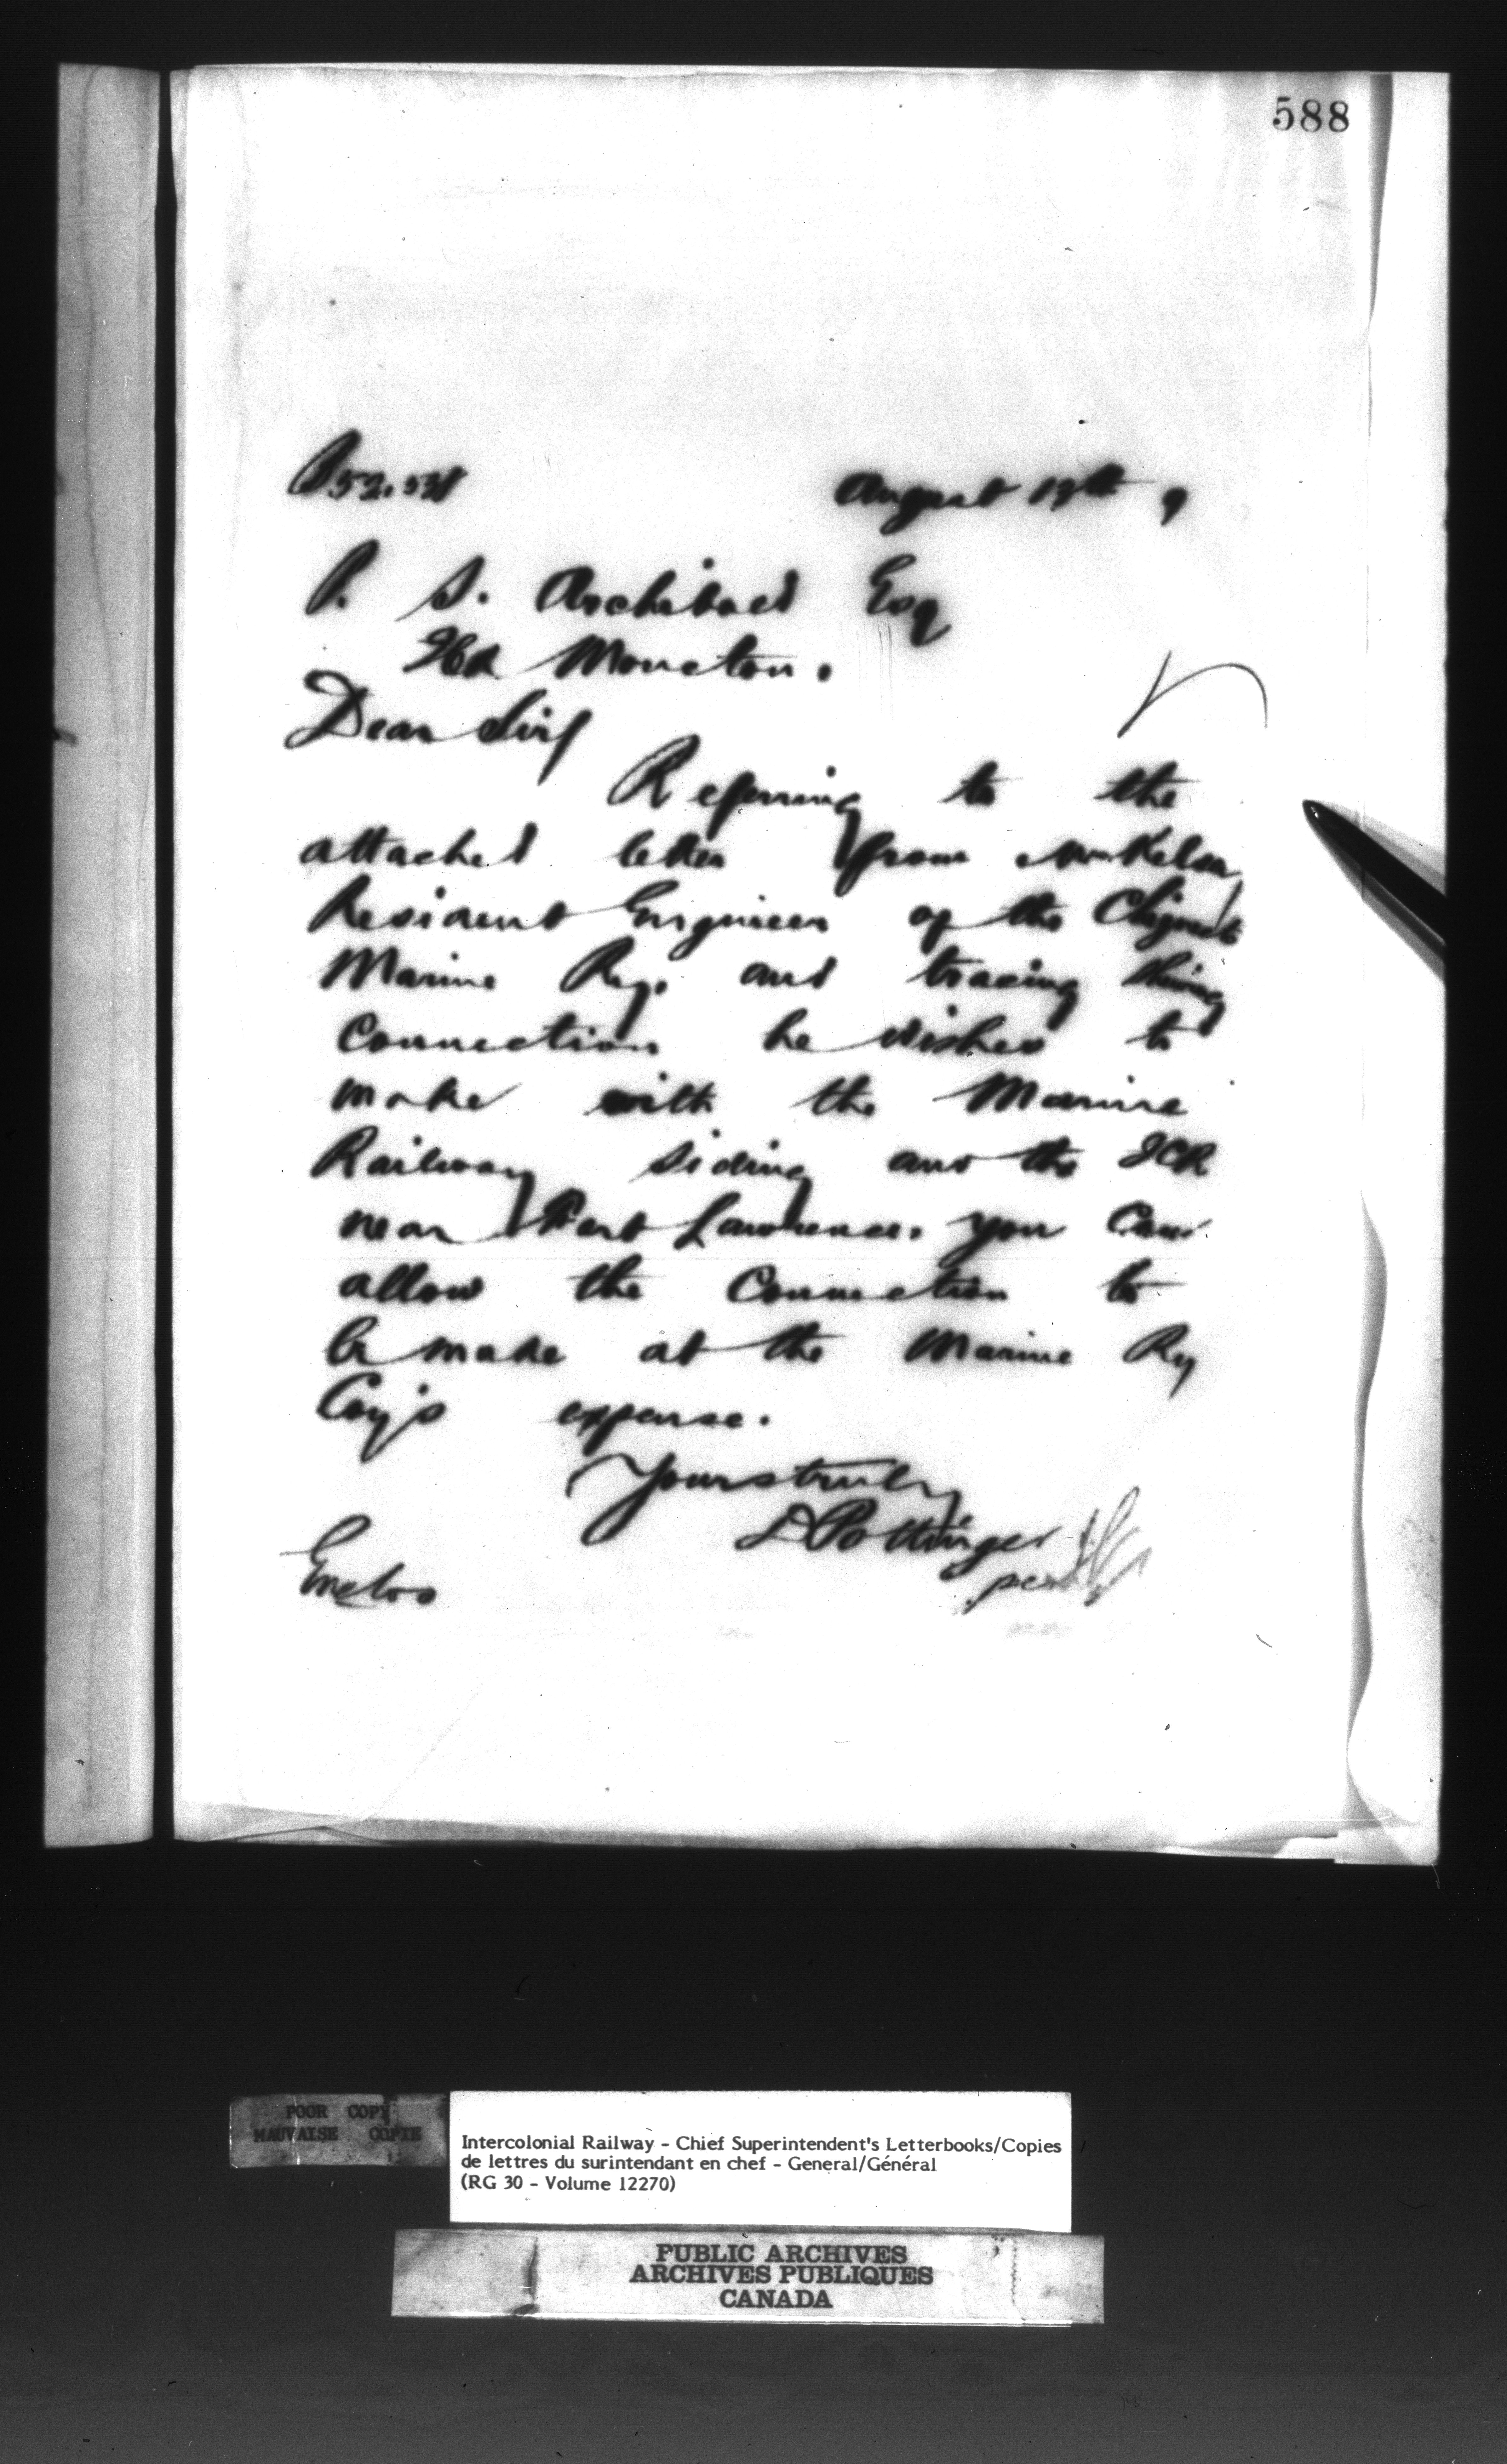 588
August 19th 9
P. S. Archibald Esq
Moncton.
Dear Sir/
Referring to the
attached letter from Mr Kelsey
Resident Engineer of the Chignecto
Marine Ry. and tracing showing
connection he wishes to
make with the Marine
Railway siding and the ICR
near Fort Lawrence. you can
allow the connection to
be made at the Marine Ry
Coy's expense.
Yours truly
D Pottinger
per
Enclos
POOR COPY
MAUVAISE COPIE
Intercolonial Railway - Chief Superintendent's Letterbooks/Copies
de lettres du surintendant en chef - General/Général
(RG 30 - Volume 12270)
PUBLIC ARCHIVES
ARCHIVES PUBLIQUES
CANADA